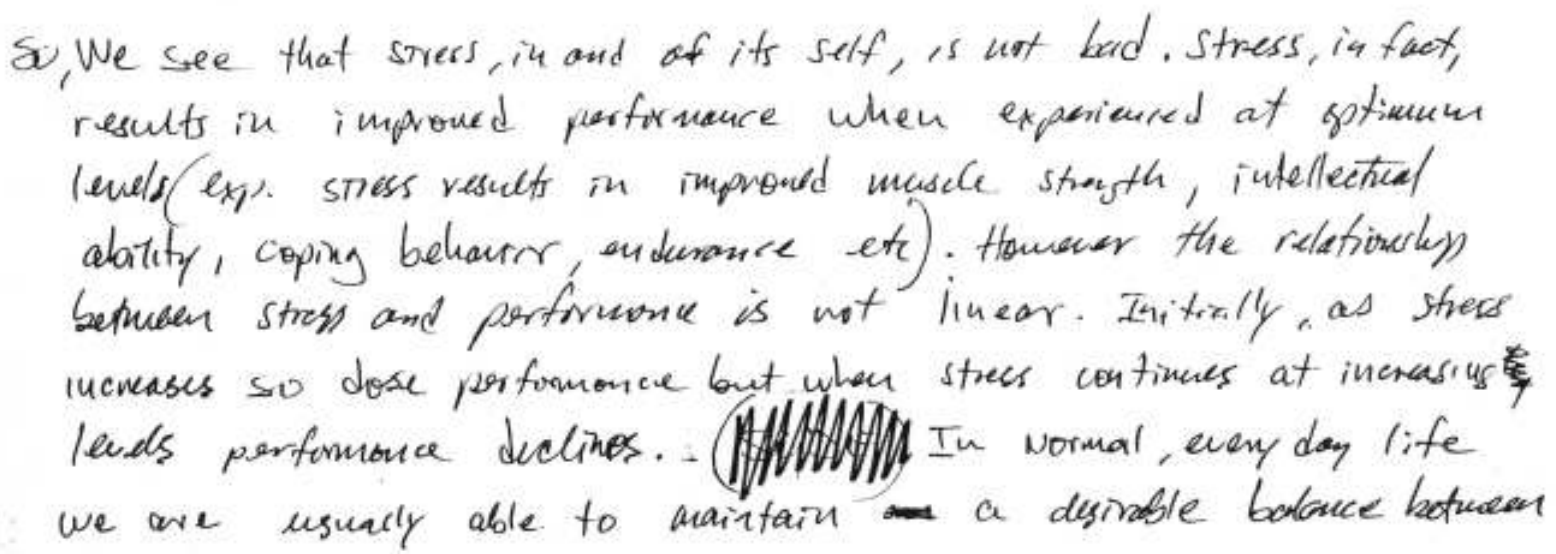 So, We see that stress, in and of its self, is not bad. Stress, in fact,
results in improved performance when experienced at optimum
levels (exp. stress results in improved muscle strength, intellectual
ability, coping behavior, endurance etc). However the relationship
between stress and performance is not linear. Initially, as stress
increases so dose performance but when stress continues at increasing
levels performance declines. In normal, every day life
we are usually able to maintain a desirable balance between